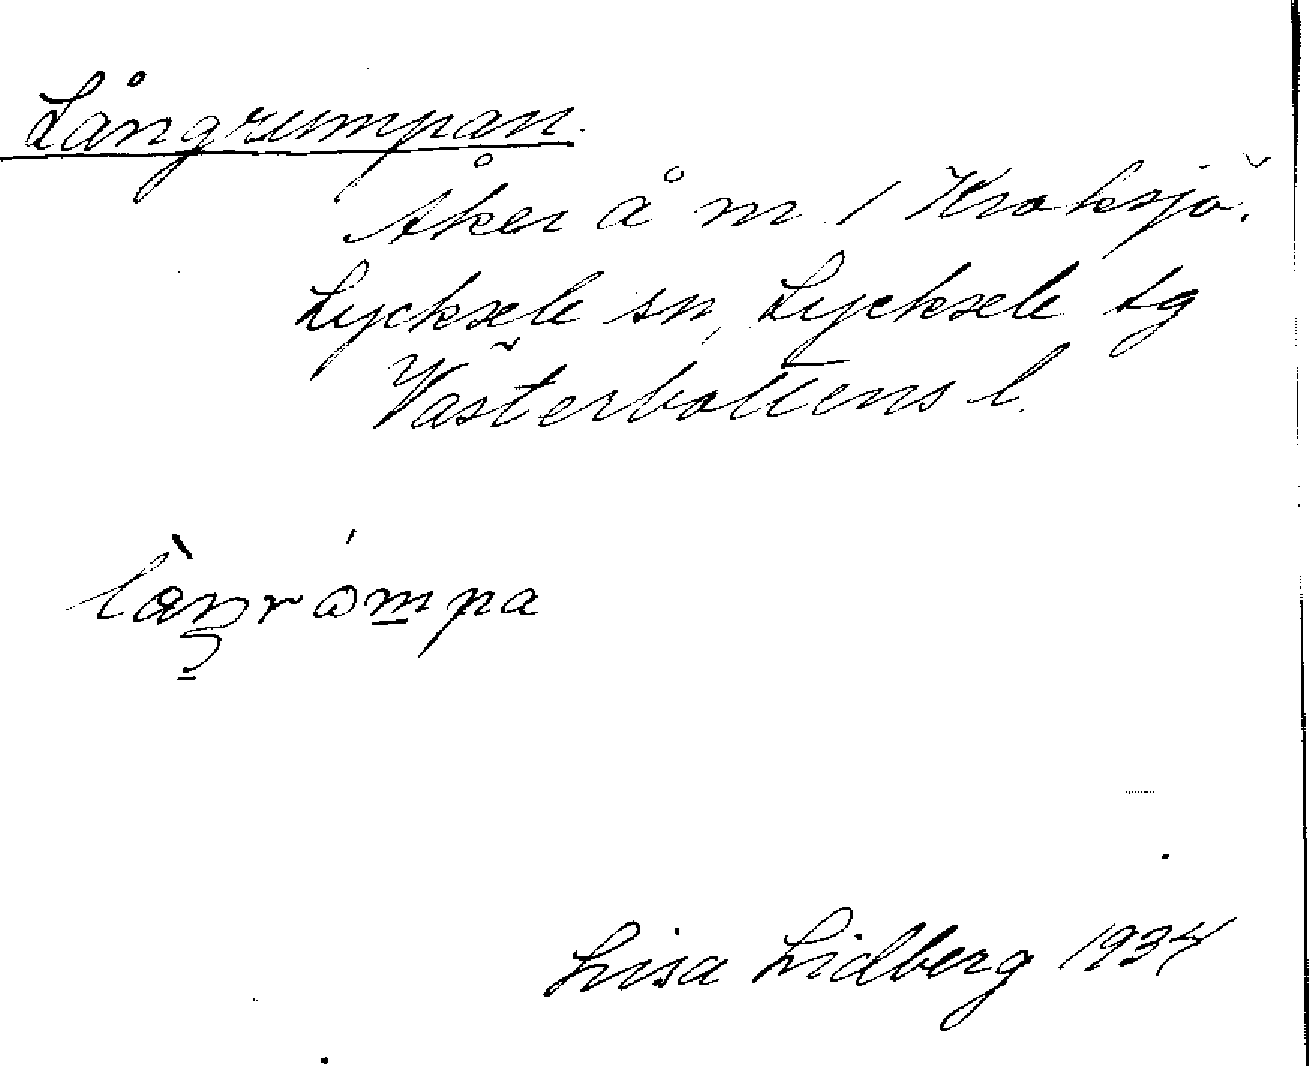 Långrumpan.
Åker å m / Kroksjö.
Lycksele sn, Lycksele tg
Västerbottens l.
Lisa Lidberg 1934